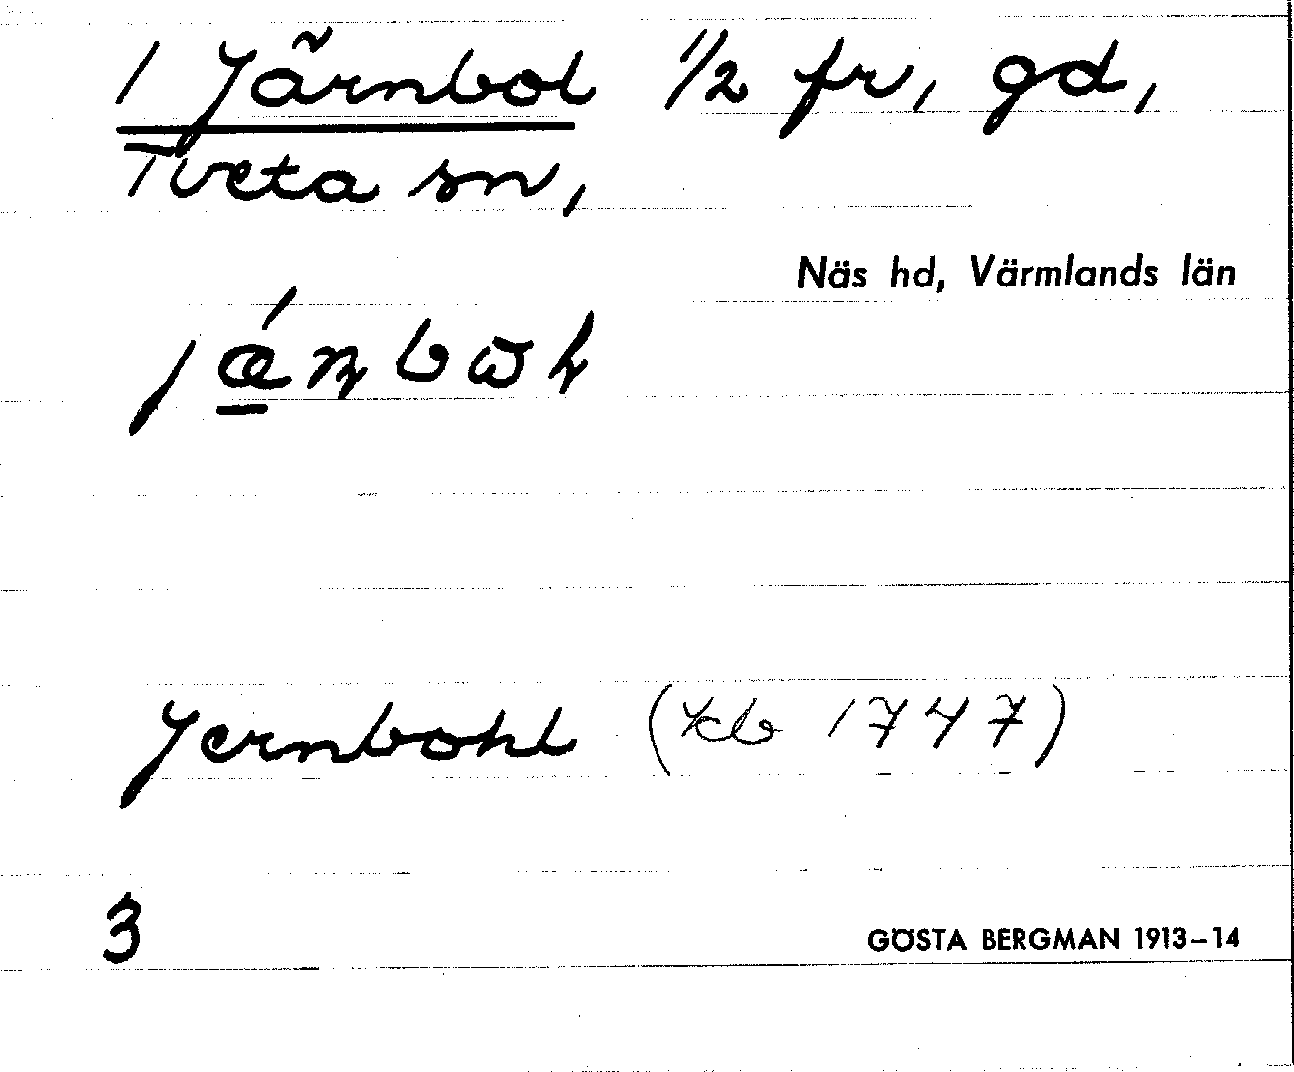 1 Järnbol 1/2 fr, gd,
Tveta sn,
Näs hd, Värmlands län
Jernbohl (kb 1747)
3 GÖSTA BERGMAN 1913–14